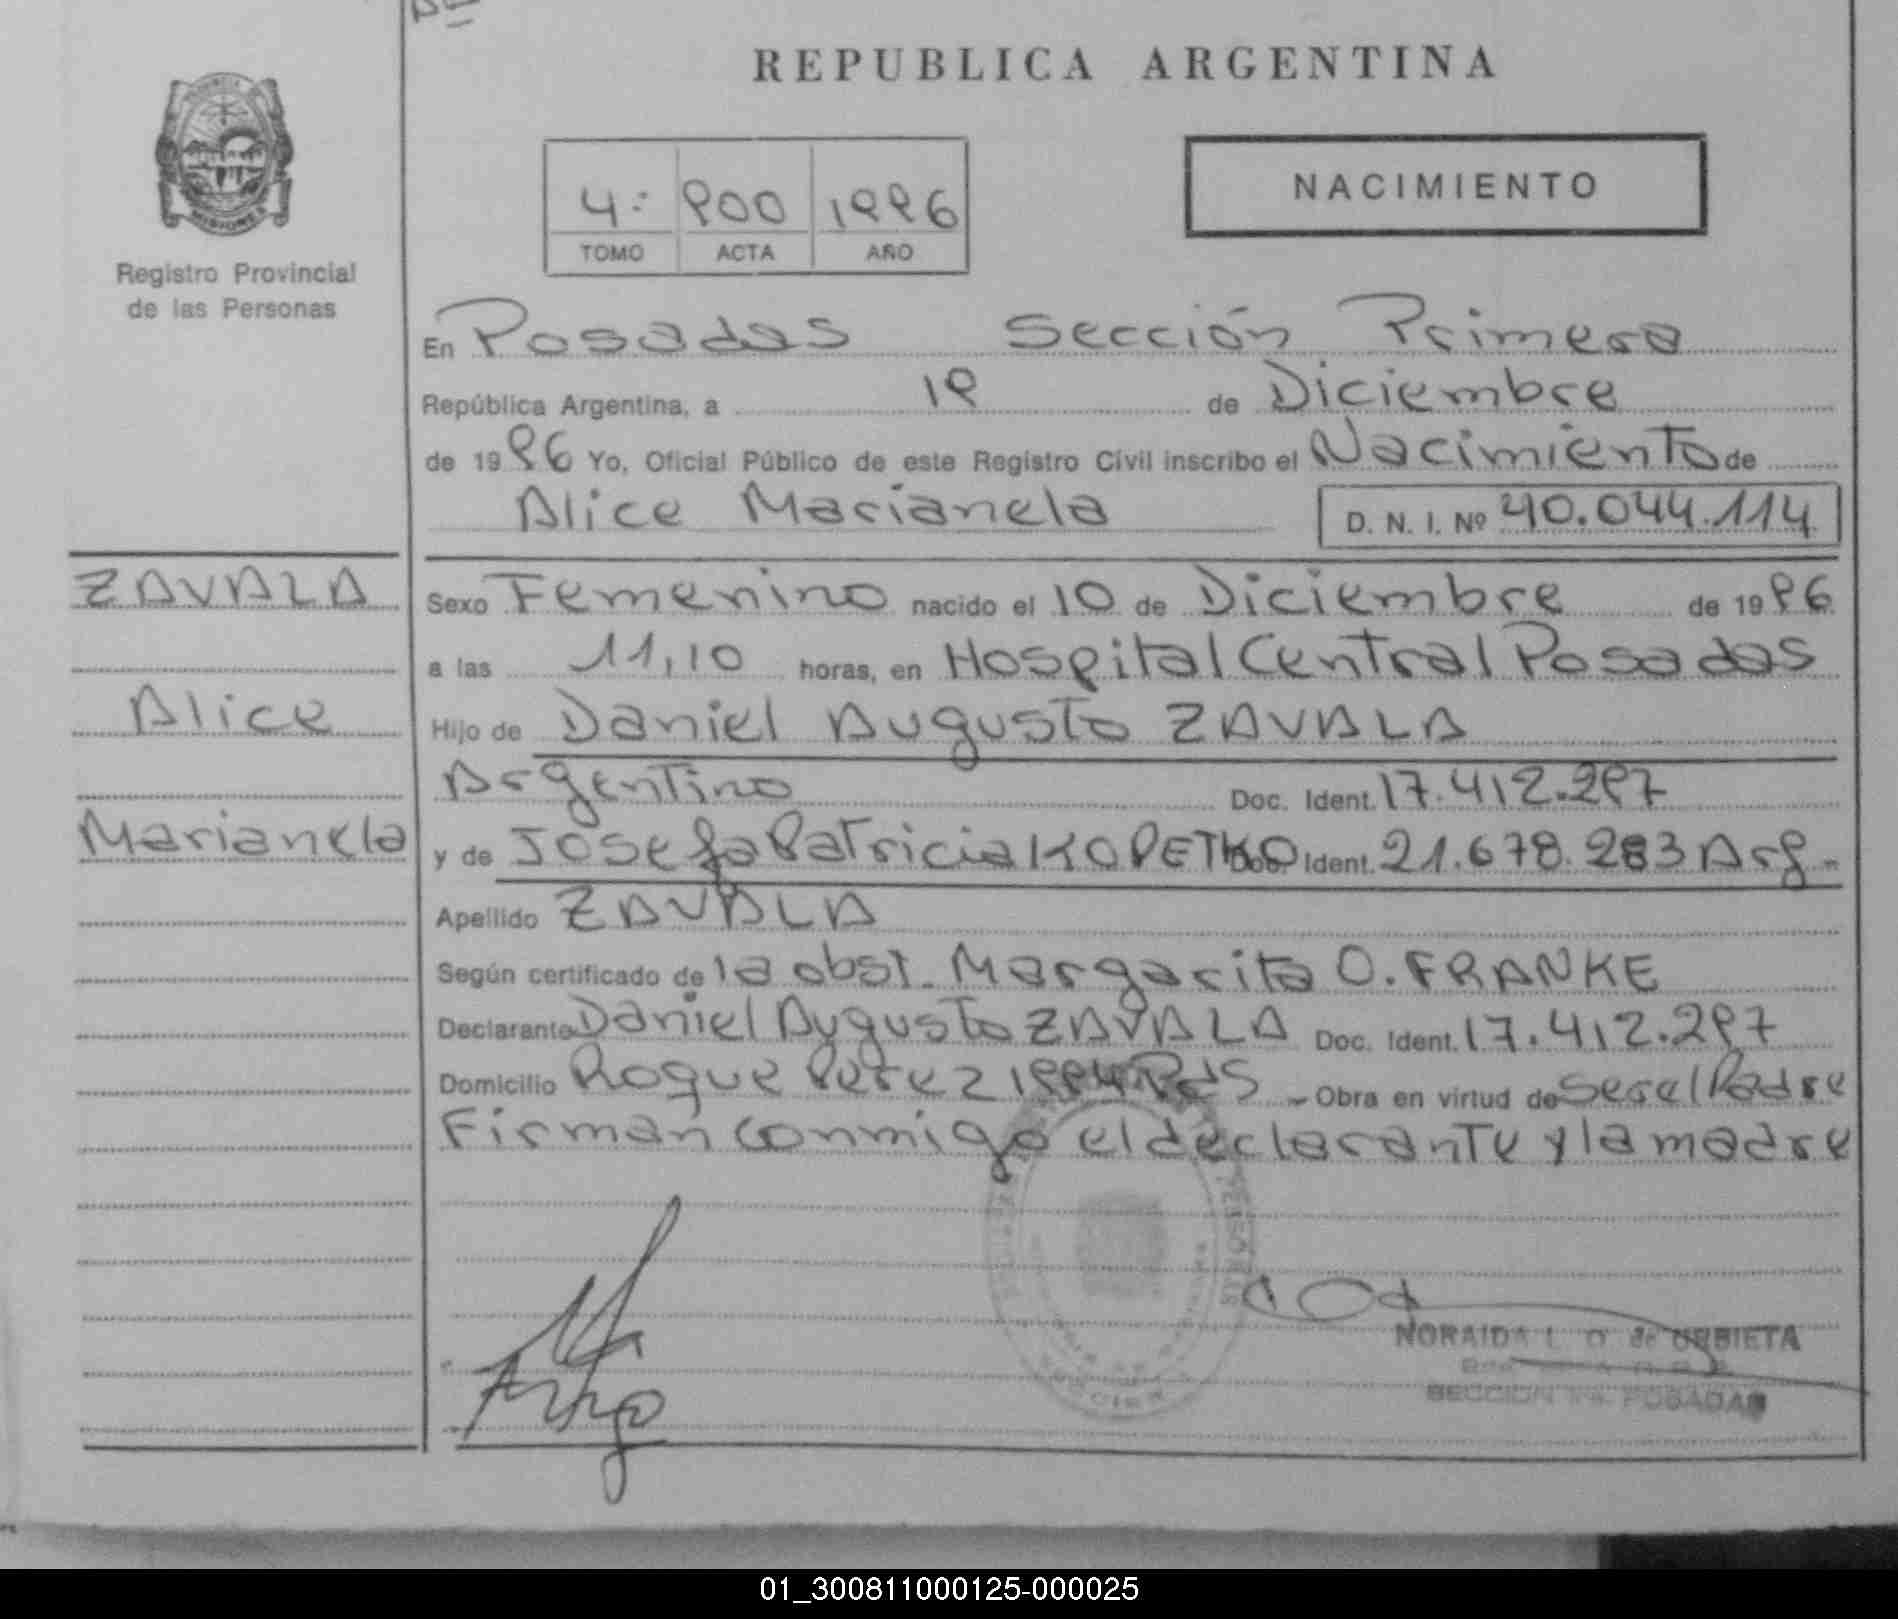 REPUBLICA ARGENTINA
MISIONES
Registro Provincial
de las Personas
4º 900 1996
TOMO ACTA AÑO
NACIMIENTO
En Posadas Sección Primera
República Argentina, a 19 de Diciembre
de 1996 Yo, Oficial Público de este Registro Civil inscribo el Nacimiento de
Alice Marianela D. N. I. Nº 40.044.114
ZAVALA
Alice
Marianela
Sexo Femenino nacido el 10 de Diciembre de 1996
a las 11,10 horas, en Hospital Central Posadas
Hijo de Daniel Augusto ZAVALA
Argentino Doc. Ident. 17.412.297
y de Josefa Patricia KOPETKO Doc. Ident. 21.678.283 Arg.-
Apellido ZAVALA
Según certificado de la obst. Margarita O. FRANKE
Declarante Daniel Augusto ZAVALA Doc. Ident. 17.412.297
Domicilio Roque Perez Pds - Obra en virtud de Ser el Padre
Firman conmigo el declarante y la madre
NORAIDA L. O. de URBIETA
SECCION 1ra. POSADAS
01_300811000125-000025